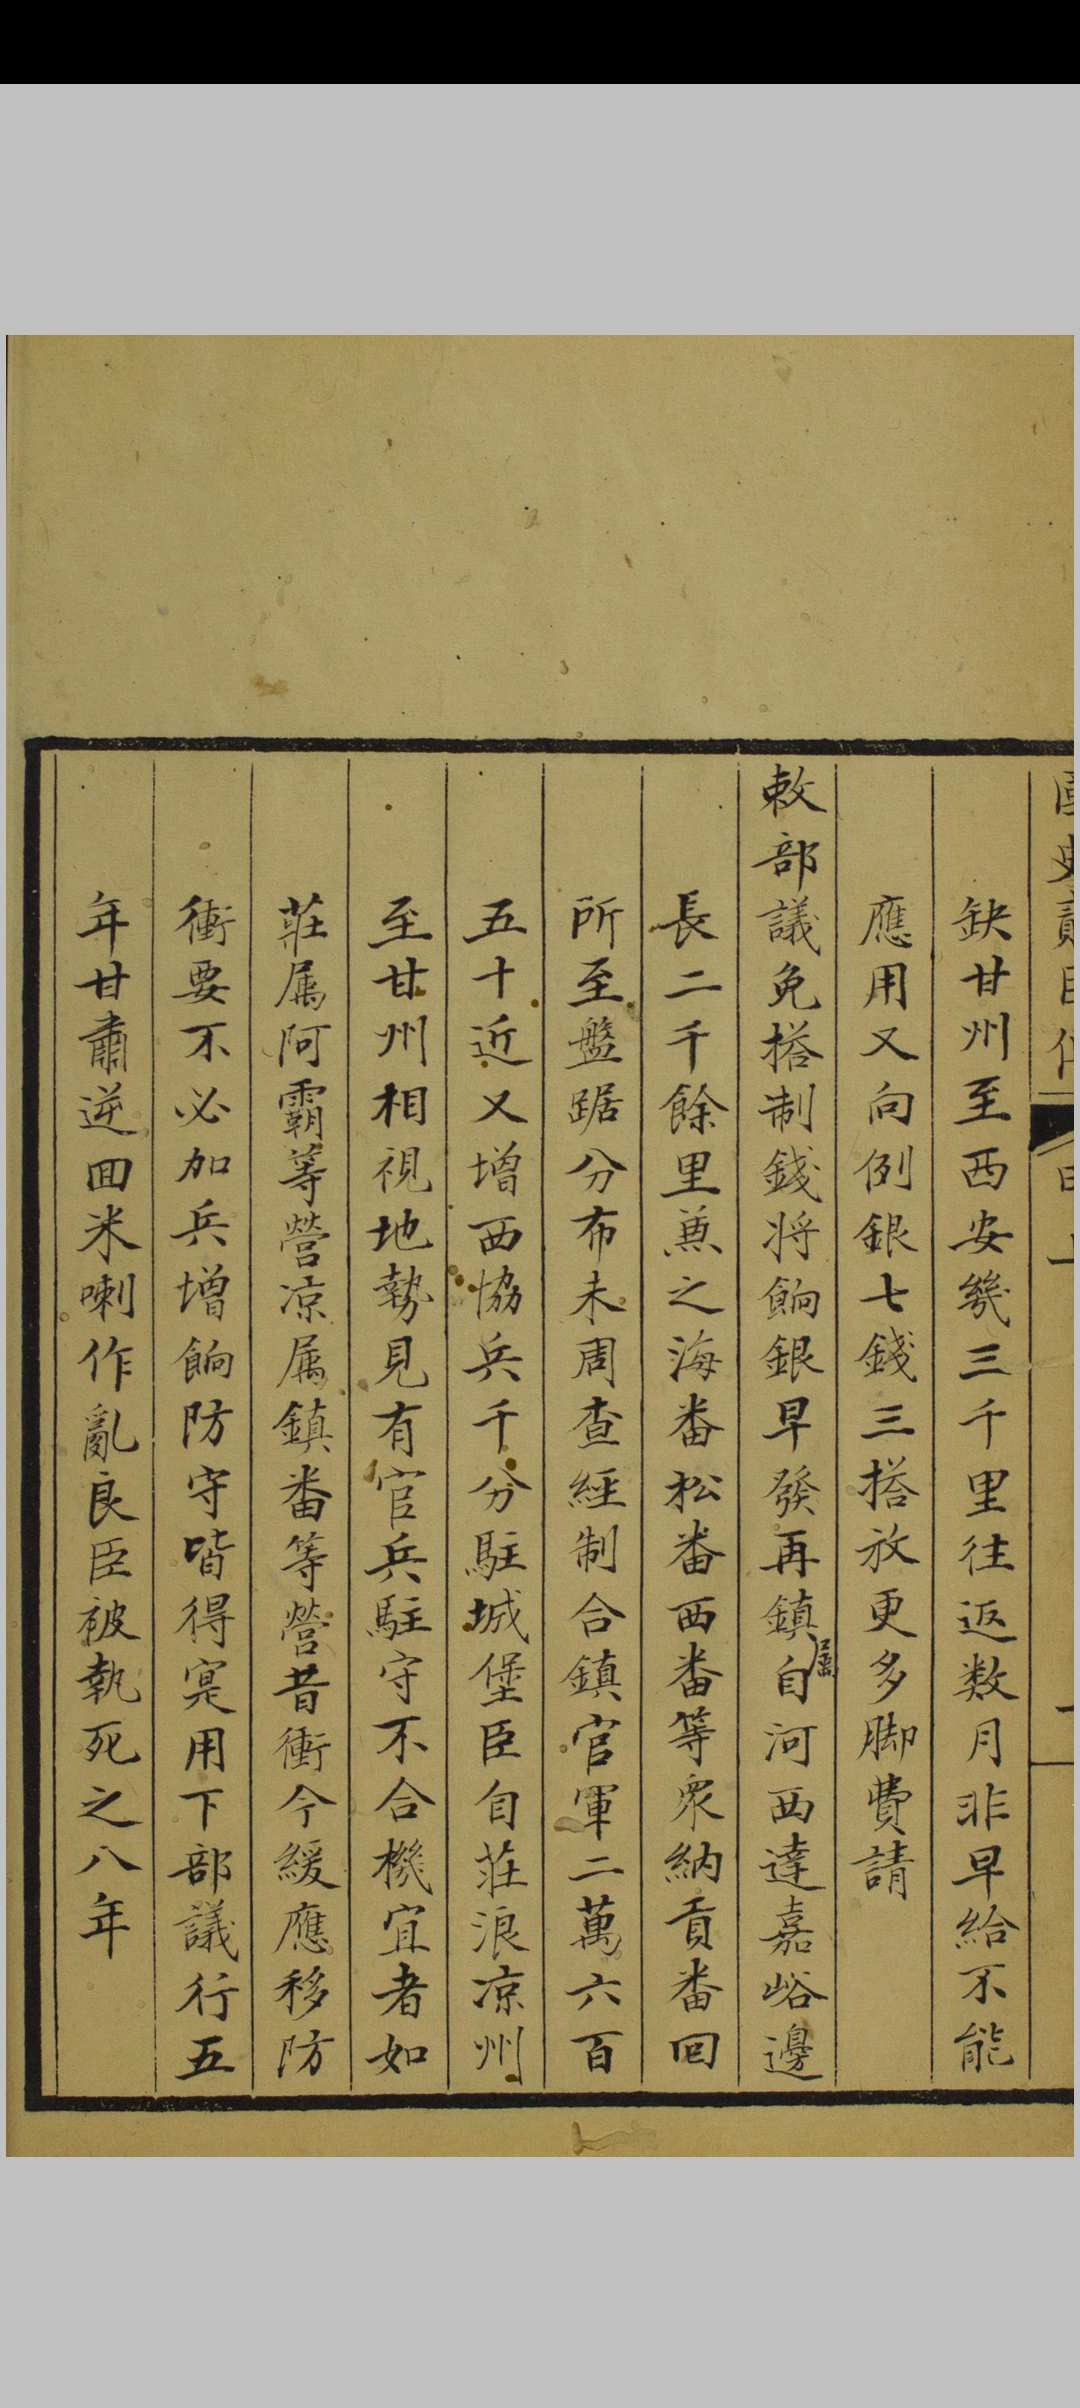 缺甘州至西安幾三千里往返数月非早給不能
應用又向例銀七錢三搭放更多脚費請
敕部議免搭制錢将餉銀早發再鎮属自河西達嘉峪邊
長二千餘里兼之海番松番西番等衆納貢番回
所至盤踞分布未周查經制合鎮官軍二萬六百
五十近又增西協兵千分駐城堡臣自莊浪凉州
至甘州相視地勢見有官兵駐守不合機宜者如
莊属阿霸等營凉属鎮番等營昔衝今緩應移防
衝要不必加兵增餉防守皆得寔用下部議行五
年甘肅逆回米喇作亂良臣被執死之八年